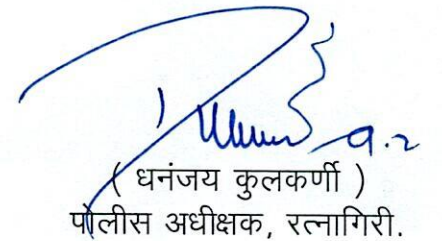 ( धनंजय कुलकर्णी )
पोलीस अधीक्षक, रत्नागिरी.